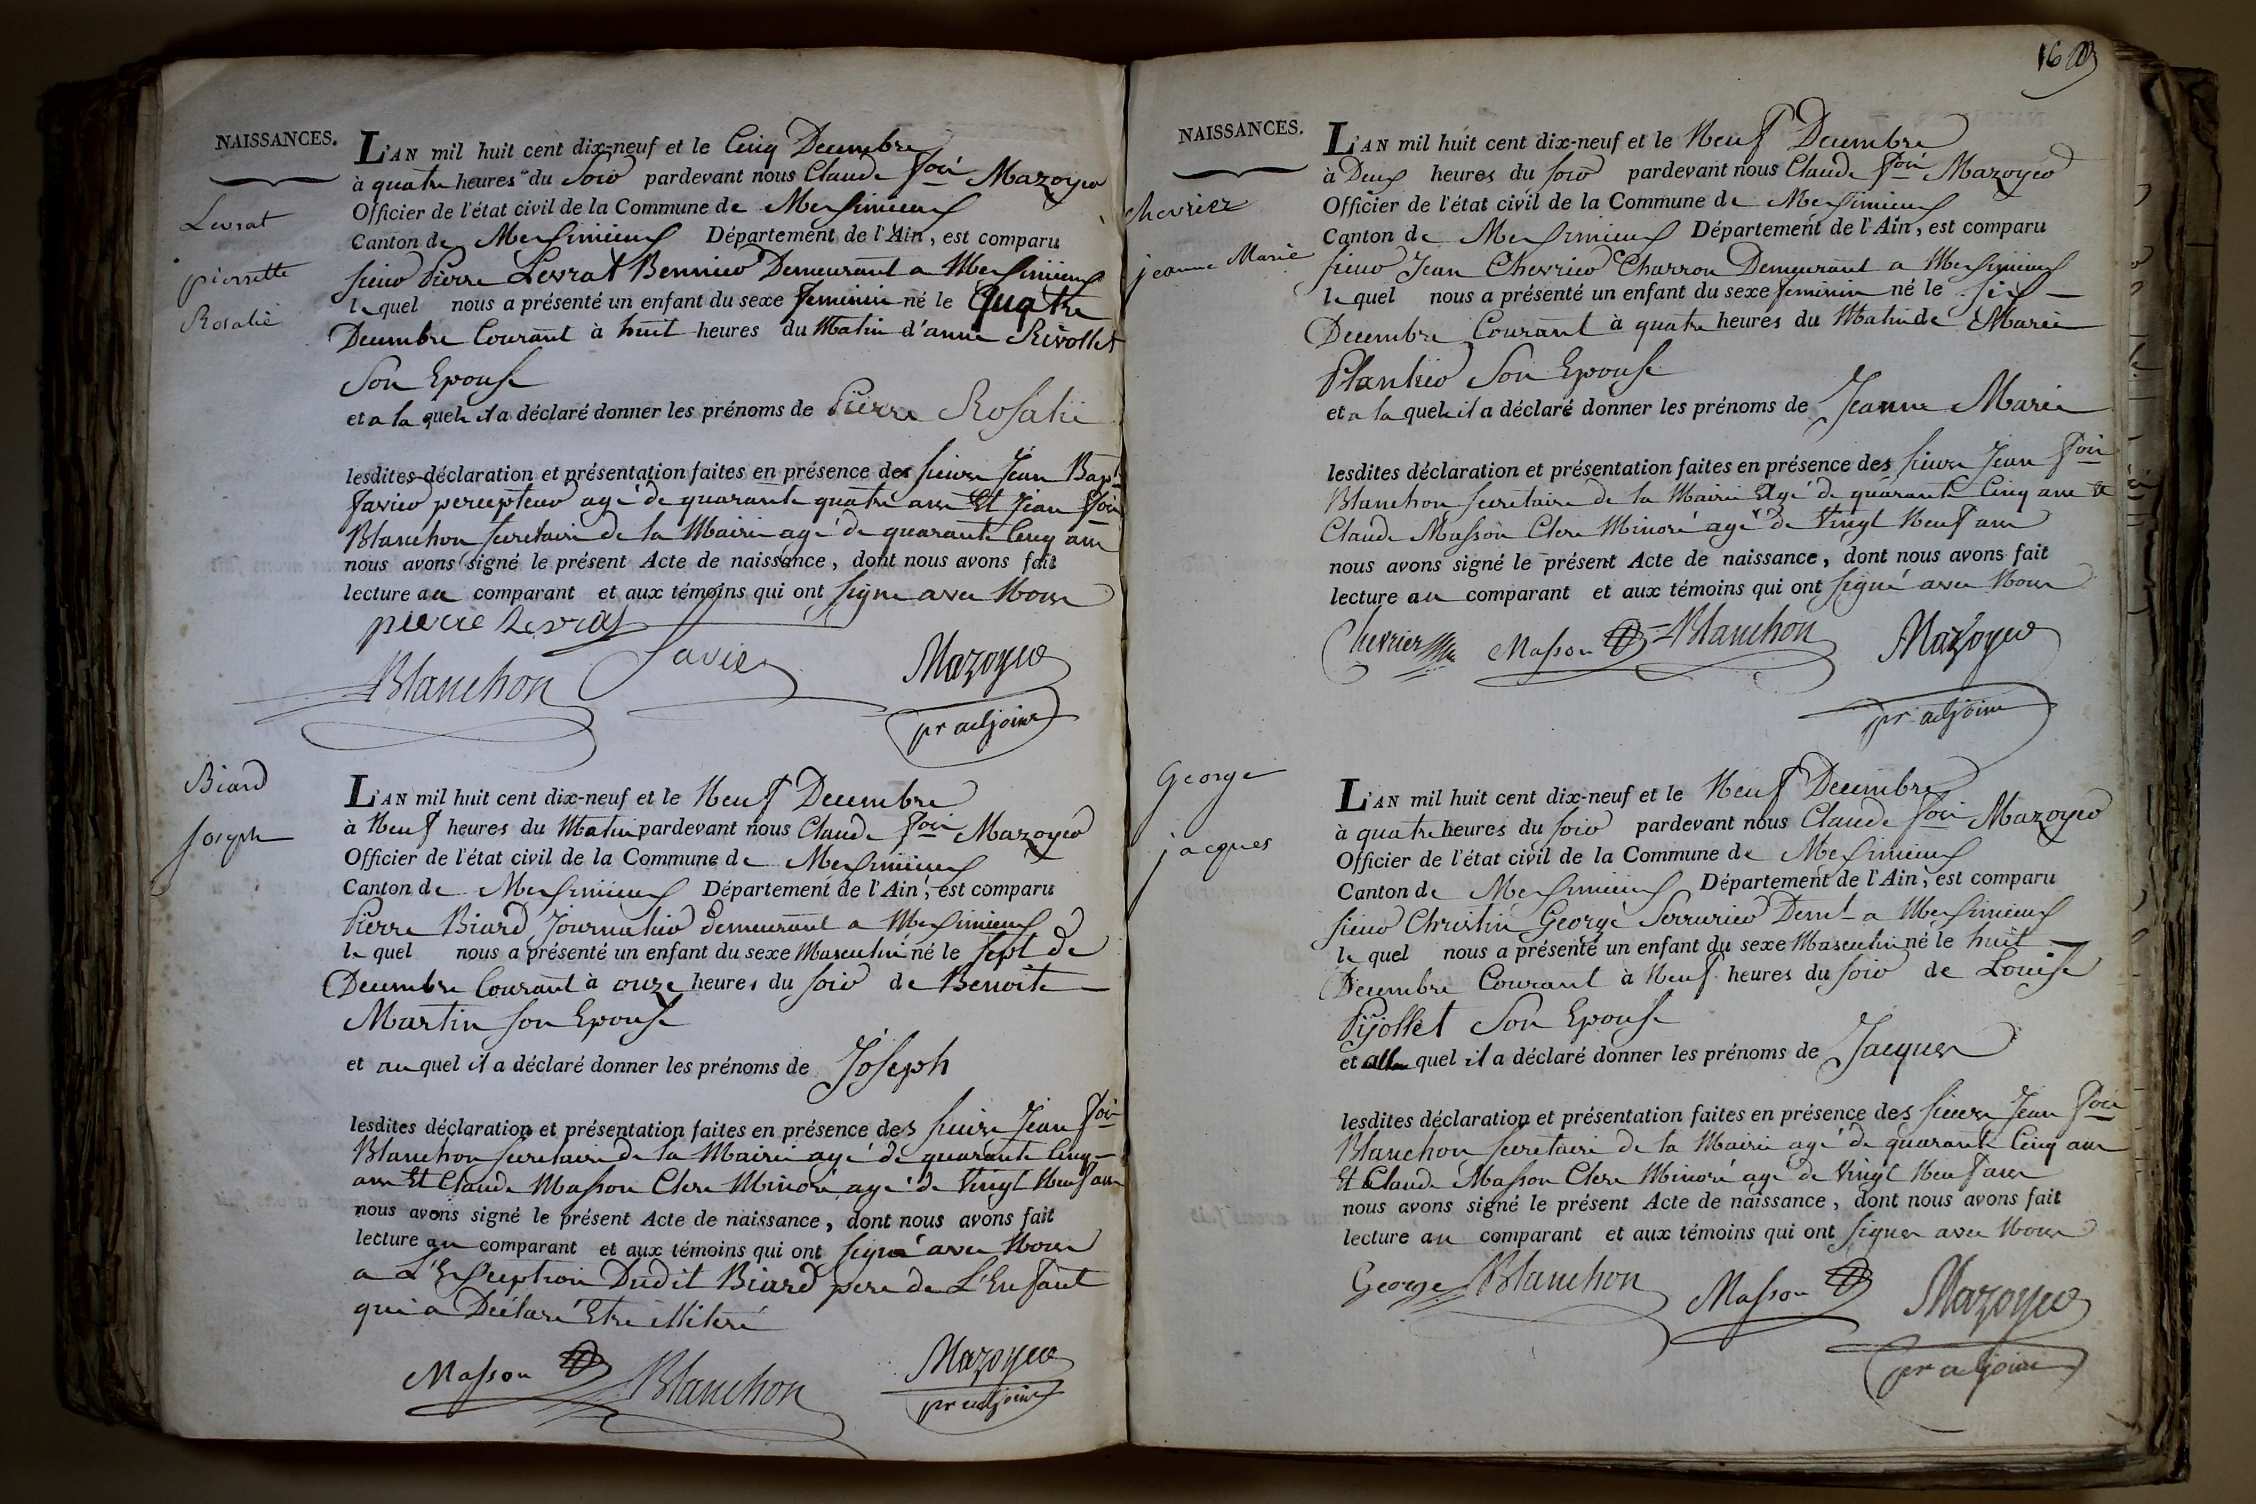 NAISSANCES.
Levrat
pierrette
Rosalie
L'AN mil huit cent dix-neuf et le Cinq Decembre
à quatre heures du soir pardevant nous Claude foix Mazoyer
Officier de l'état civil de la Commune de Meximieux
Canton de Meximieux Département de l'Ain, est comparu
sieur Pierre Levrat Demeurant a Meximieux
le quel nous a présenté un enfant du sexe feminin né le Quatre
Decembre Courant à huit heures du Matin d'anne Rivollet
Son Epouse
et a la quele il a déclaré donner les prénoms de Pierre Rosalie
lesdites déclaration et présentation faites en présence des sieurs Jean Bapt
Favier percepteur agé de quarante quatre ans Et Jean foix
Blanchon secretaire de la Mairie agé de quarante Cinq ans
nous avons signé le présent Acte de naissance, dont nous avons fait
lecture au comparant et aux témoins qui ont signe avec Nous
pierre Levrat
Blanchon Favier Mazoyer
pr adjoint
Biard
Joseph
L'AN mil huit cent dix-neuf et le Neuf Decembre
à Neuf heures du Matin pardevant nous Claude foix Mazoyer
Officier de l'état civil de la Commune de Meximieux
Canton de Meximieux Département de l'Ain, est comparu
Pierre Biard Journalier demeurant a Meximieux
le quel nous a présenté un enfant du sexe Masculin né le sept de
Decembre Courant à onze heures du soir de Benoite
Martin son Epouse
et au quel il a déclaré donner les prénoms de Joseph
lesdites déclaration et présentation faites en présence des sieurs Jean foix
Blanchon secretaire de la Mairie agé de quarante Cinq
ans Et Claude Masson Clerc Minoré agé de Vingt Neuf ans
nous avons signé le présent Acte de naissance, dont nous avons fait
lecture au comparant et aux témoins qui ont signé avec Nous
a L'Exception Dudit Biard pere de L'Enfant
qui a Déclaré Etre illiteré
Masson Blanchon Mazoyer
pr adjoint
NAISSANCES.
chevrier
jeanne Marie
L'AN mil huit cent dix-neuf et le Neuf Decembre
à Deux heures du soir pardevant nous Claude foix Mazoyer
Officier de l'état civil de la Commune de Meximieux
Canton de Meximieux Département de l'Ain, est comparu
sieur Jean Chevrier Charron Demeurant a Meximieux
le quel nous a présenté un enfant du sexe feminin né le six
Decembre Courant à quatre heures du Matin de Marie
Plantier Son Epouse
et a la quele il a déclaré donner les prénoms de Jeanne Marie
lesdites déclaration et présentation faites en présence des sieurs Jean foix
Blanchon secretaire de la Mairie Agé de quarante Cinq ans et
Claude Masson Clerc Minoré agé de Vingt Neuf ans
nous avons signé le présent Acte de naissance, dont nous avons fait
lecture au comparant et aux témoins qui ont signé avec Nous
Chevrier Masson Blanchon Mazoyer
pr adjoint
George
jacques
L'AN mil huit cent dix-neuf et le Neuf Decembre
à quatre heures du soir pardevant nous Claude foix Mazoyer
Officier de l'état civil de la Commune de Meximieux
Canton de Meximieux Département de l'Ain, est comparu
sieur Christin George Serrurier Demt a Meximieux
le quel nous a présenté un enfant du sexe Masculin né le huit
Decembre Courant à Neuf heures du soir de Louise
Pijollet Son Epouse
et quel il a déclaré donner les prénoms de Jacques
lesdites déclaration et présentation faites en présence des sieurs Jean foix
Blanchon secretaire de la Mairie agé de quarante Cinq ans
Et Claude Masson Clerc Minoré agé de Vingt Neuf ans
nous avons signé le présent Acte de naissance, dont nous avons fait
lecture au comparant et aux témoins qui ont signer avec Nous
George Blanchon Masson Mazoyer
pr adjoint